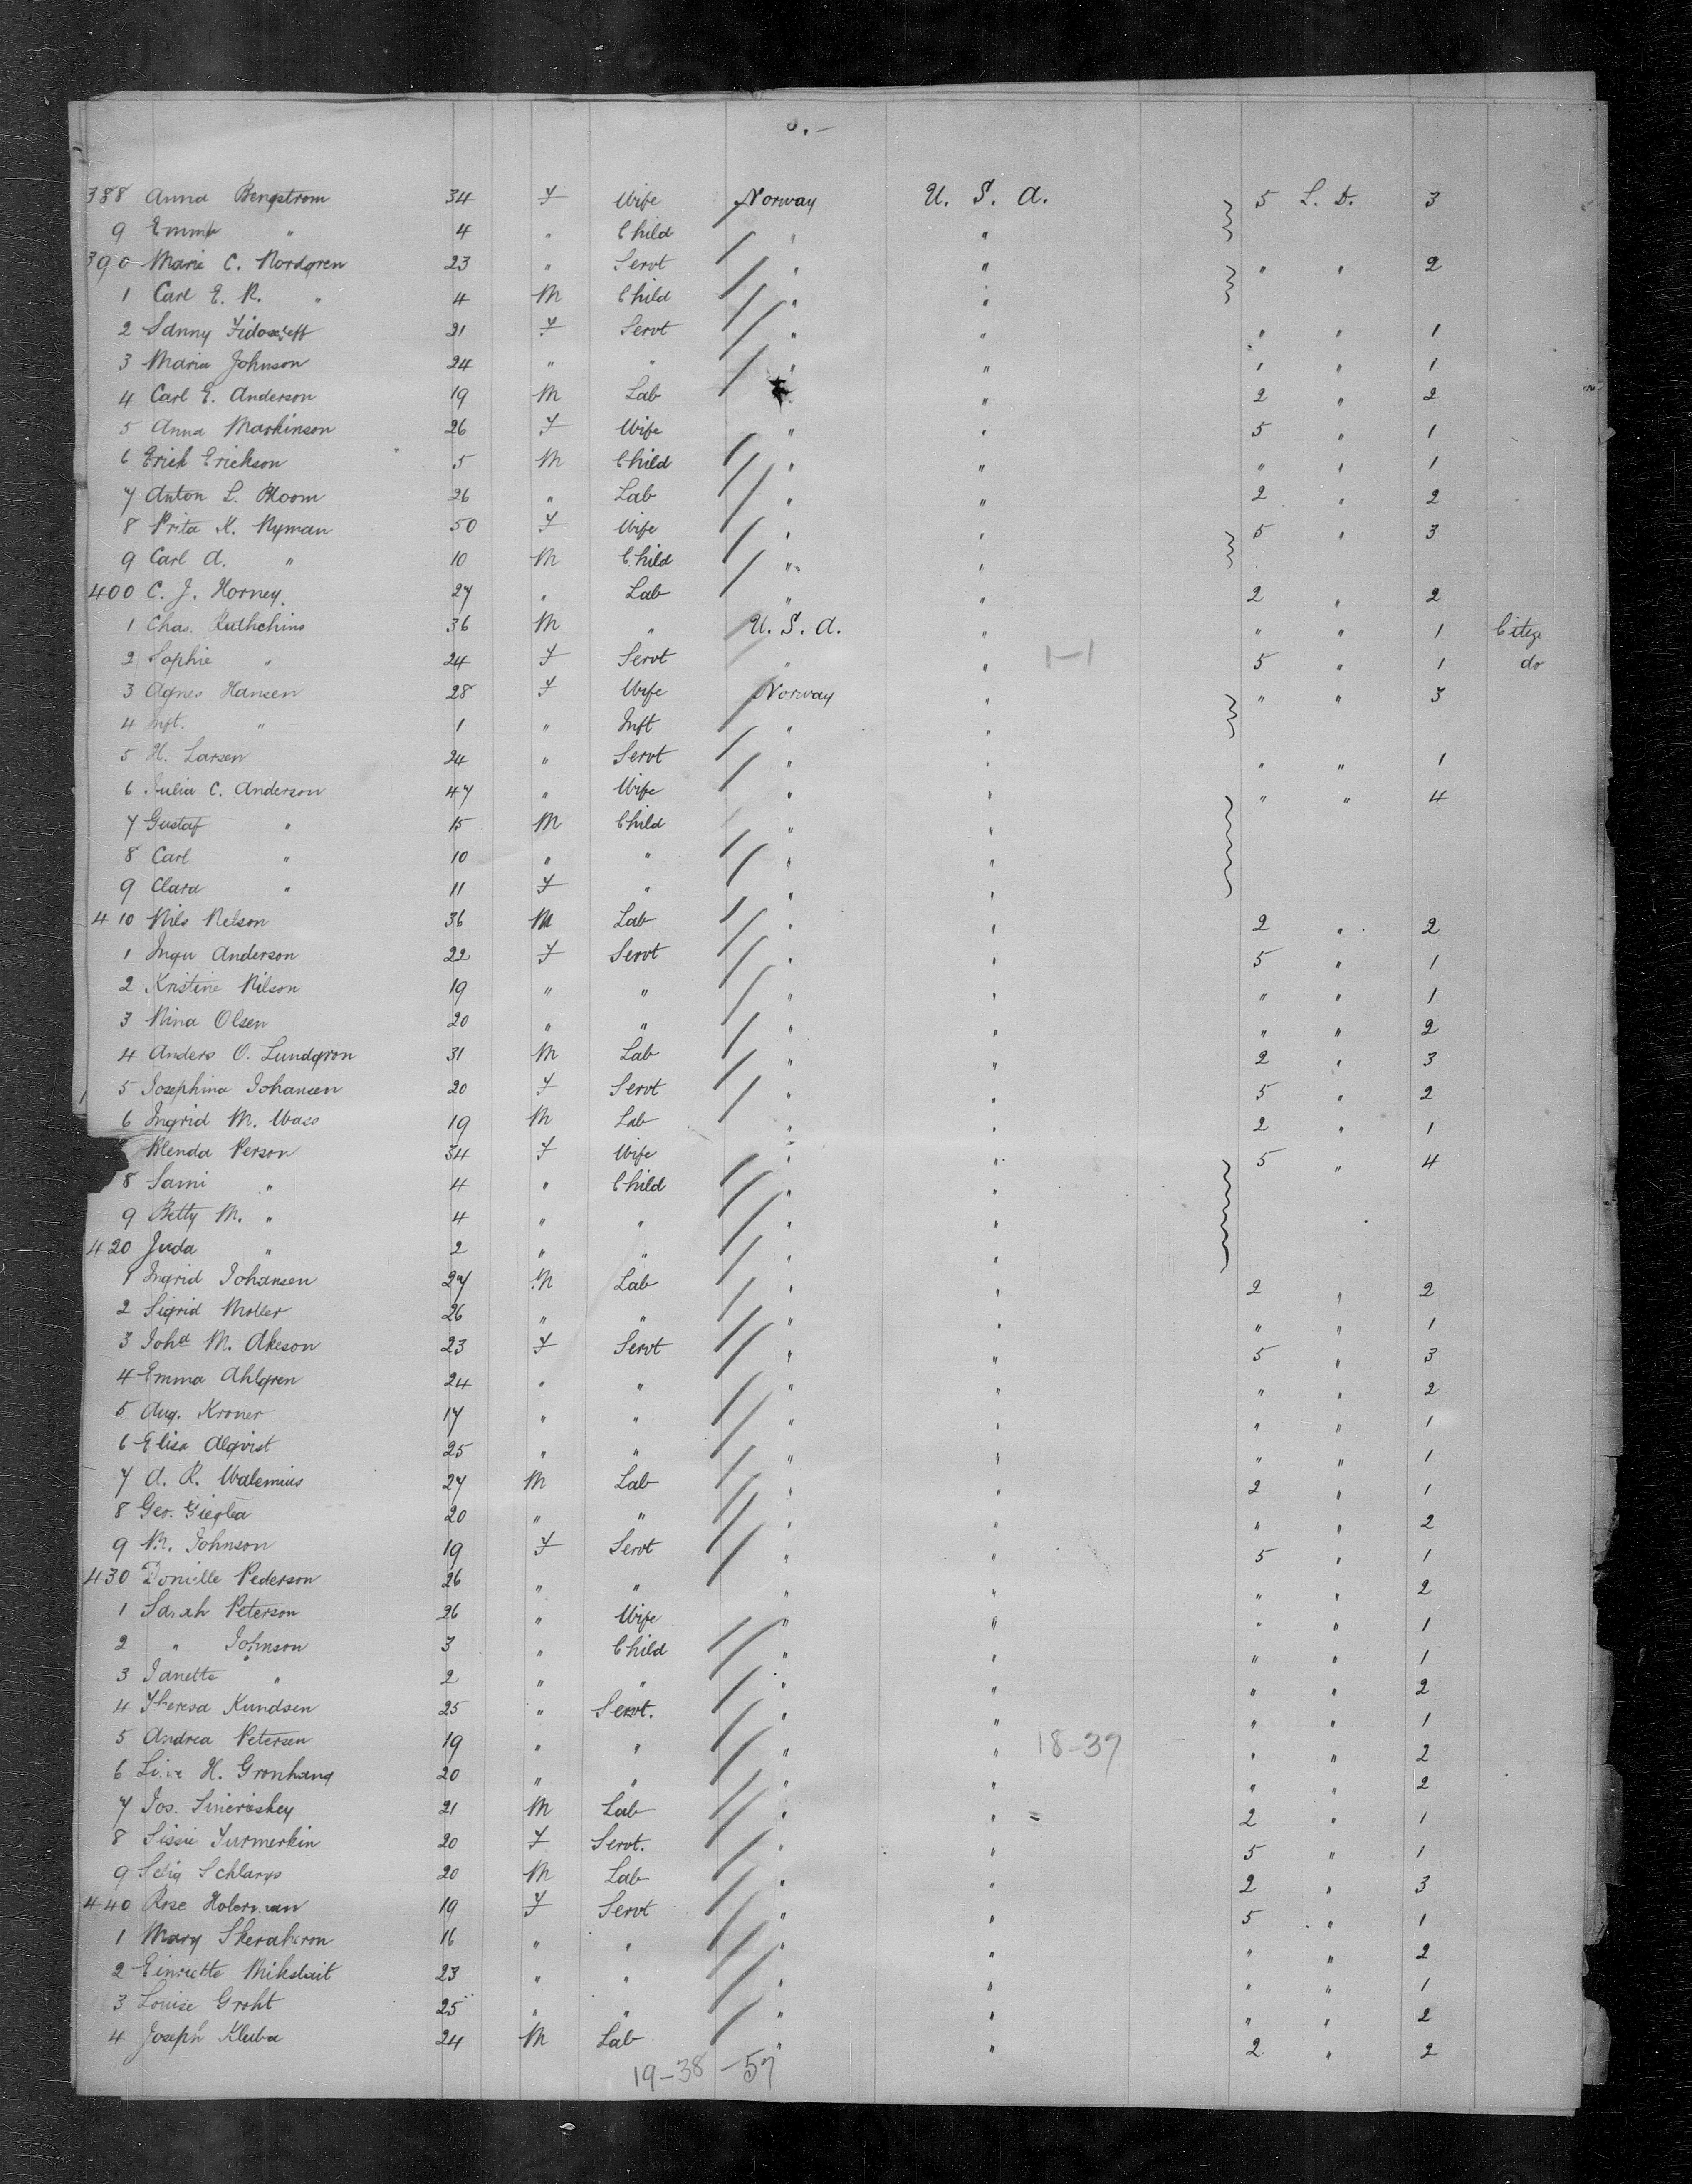 388 Anna Bengstrom 34 F Wife Norway U. S. A. 5 L. D. 3
9 Emma " 4 " Child " "
390 Marie C. Nordgren 23 " Servt " " " " 2
1 Carl E. R. " 4 M Child " "
2 Sanny 21 F Servt " " " " 1
3 Maria Johnson 24 " " " " " " 1
4 Carl E. Anderson 19 M Lab " 2 " 2
5 Anna Markinson 26 F Wife " " 5 " 1
6 Erick Erickson 5 M Child " " " " 1
7 Anton L. Bloom 26 " Lab " " 2 " 2
8 Brita K. Nyman 50 F Wife " " 5 " 3
9 Carl A. " 10 M Child " "
400 C. J. Horney 27 " Lab " " 2 " 2
1 Chas. Kuthchins 36 M " U. S. A. " " " 1 Citzn
2 Sophie " 24 F Servt " " 1-1 5 " 1 do
3 Agnes Hansen 28 F Wife Norway " " " 3
4 Inft. " 1 " Inft " "
5 H. Larsen 24 " Servt " " " " 1
6 Julia C. Anderson 47 " Wife " " " " 4
7 Gustaf " 15 M Child " "
8 Carl " 10 " " " "
9 Clara " 11 F " " "
410 Nils Nelson 36 M Lab " " 2 " 2
1 Inga Anderson 22 F Servt " " 5 " 1
2 Kristine Nilson 19 " " " " " " 1
3 Nina Olsen 20 " " " " " " 2
4 Anders O. Lundgron 31 M Lab " " 2 " 3
5 Josephina Johansen 20 F Servt " " 5 " 2
6 Ingrid M. Wass 19 M Lab " " 2 " 1
Blenda Person 34 F Wife " " 5 " 4
8 Sami " 4 " Child " "
9 Betty M. " 4 " " " "
420 Juda " 2 " " " "
1 Ingrid Johansen 27 M Lab " " 2 " 2
2 Sigrid Moller 26 " " " " " " 1
3 Joha M. Akeson 23 F Servt " " 5 " 3
4 Emma Ahlgren 24 " " " " " " 2
5 Aug. Kroner 17 " " " " " " 1
6 Elisa Alqvist 25 " " " " " " 1
7 A. R. Walenius 27 M Lab " " 2 " 1
8 Geo. 20 " " " " " " 2
9 M. Johnson 19 F Servt " " 5 " 1
430 Donielle Pederson 26 " " " " " " 2
1 Sarah Peterson 26 " Wife " " " " 1
2 " Johnson 3 " Child " " " " 1
3 Janette " 2 " " " " " " 2
4 Theresa Kundsen 25 " Servt. " " " " 1
5 Andrea Petersen 19 " " " " 18-37 " " 2
6 Line H. Gronhang 20 " " " " " " 2
7 Jos. 21 M Lab " " = 2 " 1
8 Lissie Turmerkin 20 F Servt. " " 5 " 1
9 Selig Schlarys 20 M Lab " " 2 " 3
440 Rose Holerman 19 F Servt " " 5 " 1
1 Mary 16 " " " " " " 2
2 23 " " " " " " 1
3 Louise Groht 25 " " " " " " 2
4 Joseph Kluba 24 M Lab " " 2 " 2
19-38-57